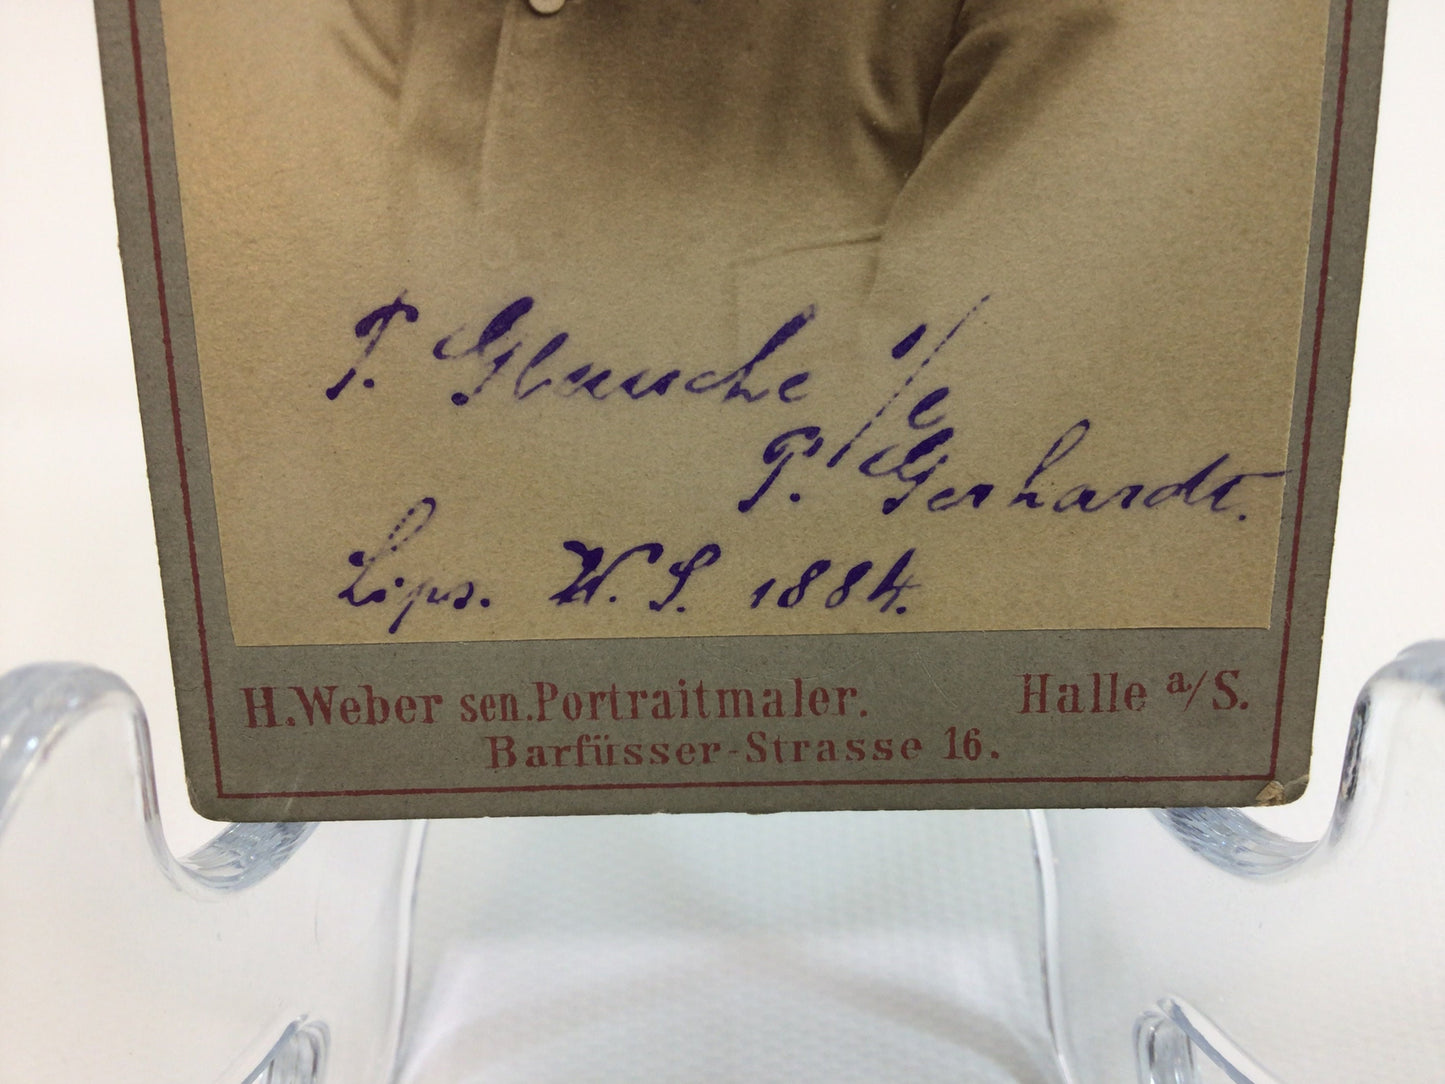 P. Glausche ./.
P. Gerhardt.
Lips. W. S. 1884.
H. Weber sen. Portraitmaler. Halle a/S.
Barfüsser-Strasse 16.